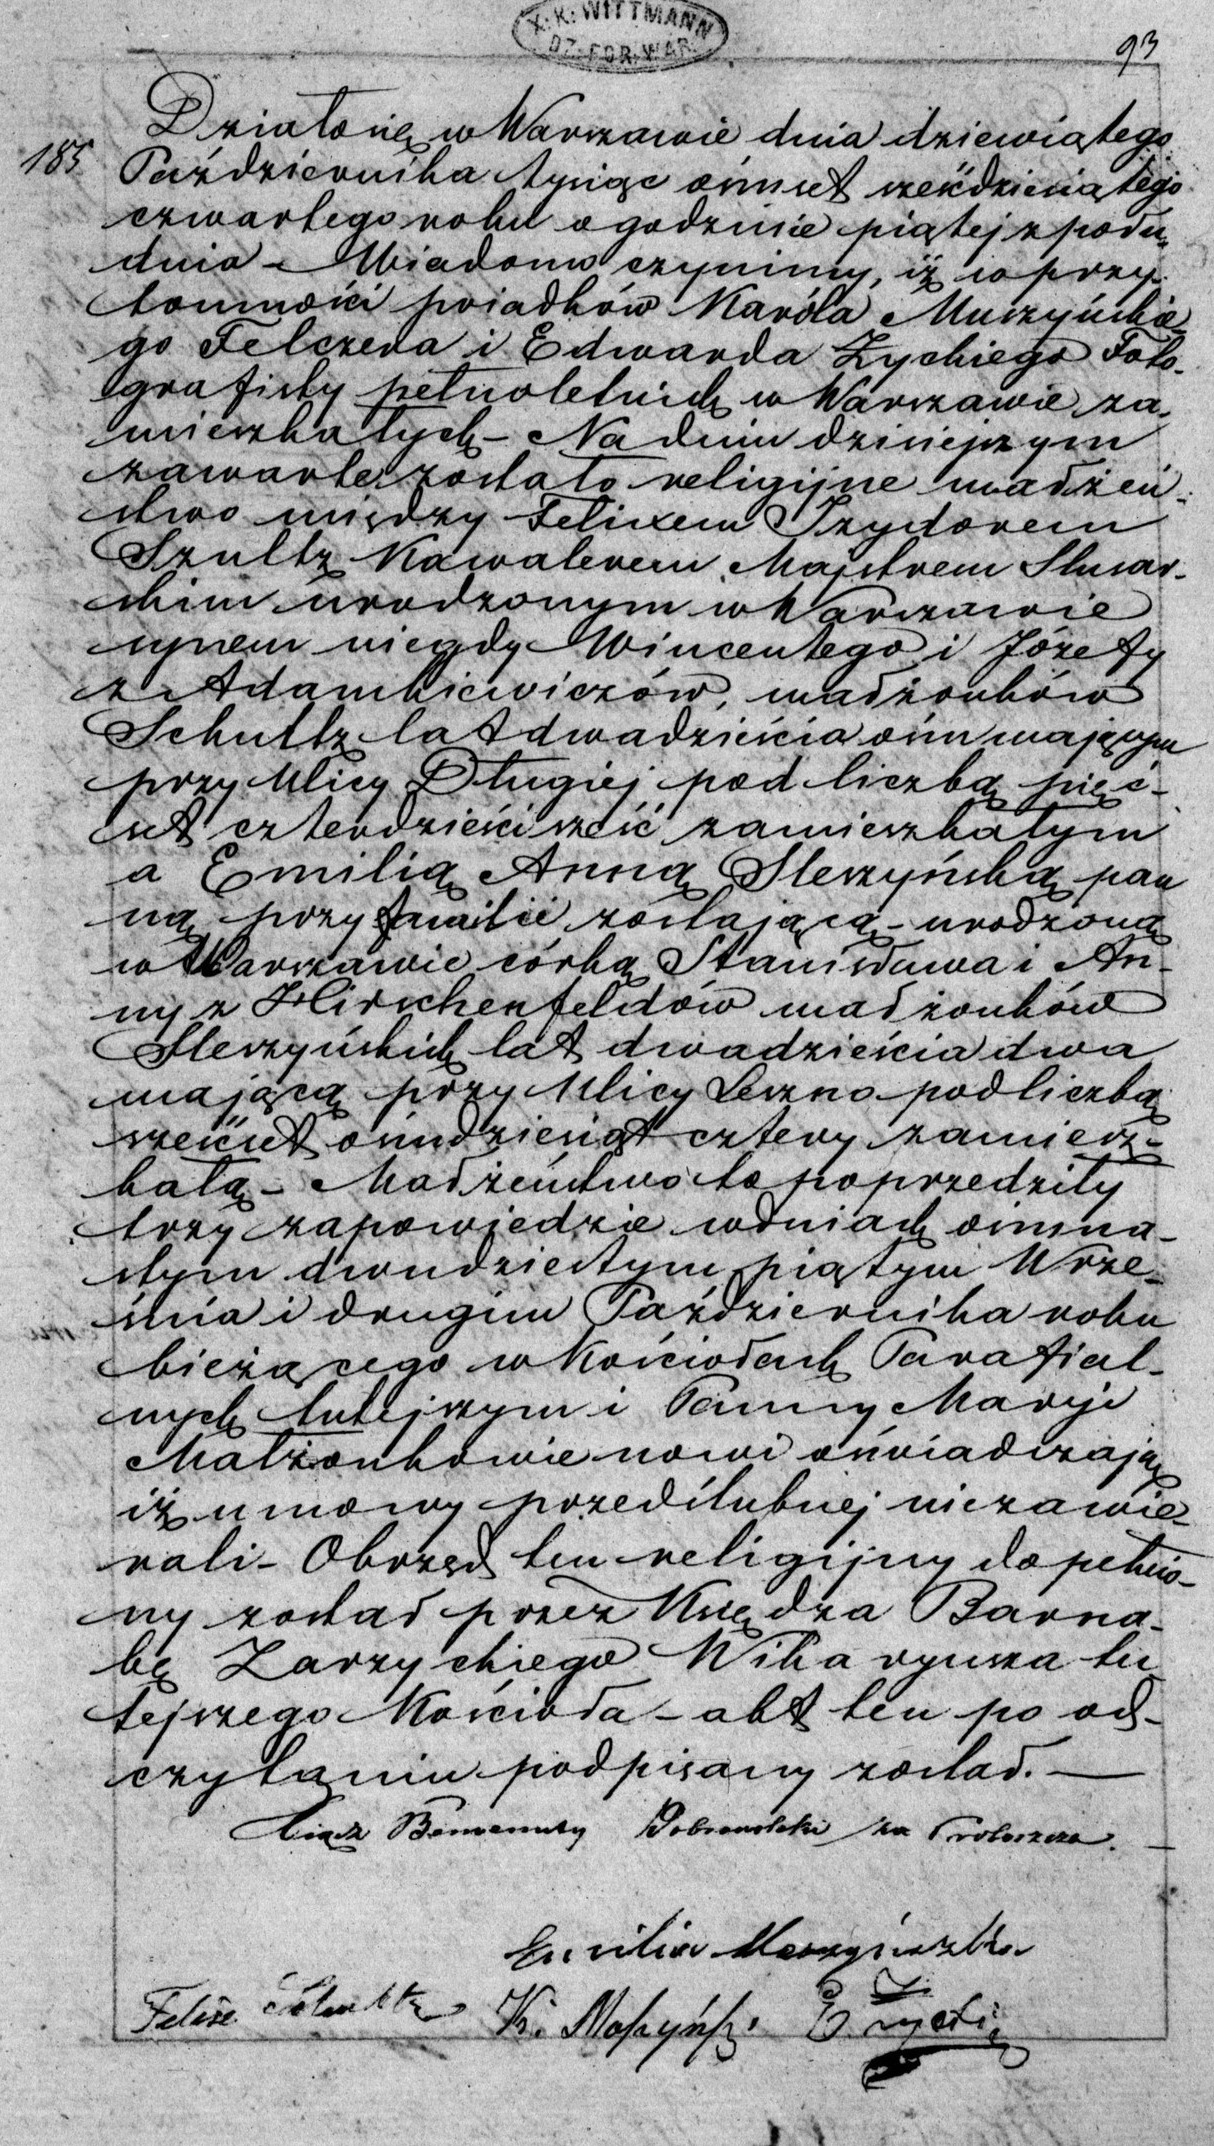 X. K. WITTMANN
DZ. FOR. WAR.
93
185
Działo się w Warszawie dnia dziewiątego
Października tysiąc ośmset sześćdziesiątego
czwartego roku o godzinie piątej z połu„
dnia – Wiadomo czynimy, iż w przy-
tomności świadków Karóla Muszyńskie„
go Felczera i Edwarda Zyckiego Foto-
grafisty pełnoletnich w Warszawie za-
mieszkałych – Na dniu dzisiejszym
zawarte zostało religijne małżeń-
stwo między Felixem Izydorem
Szultz Kawalerem, Majstrem Slusar-
skim urodzonym w Warszawie
synem niegdy Wincentego i Józefy
z Adamkiewiczów, małżonków
Schultz lat dwadzieścia ośm mającym
przy Ulicy Długiej pod liczbą pięć-
set czterdzieści sześć zamieszkałym
a Emilią Anną Sleszyńską pan
ną przy familii zostającą – urodzoną
w Warszawie córką Stanisława i An-
ny z Hirschenfeldów małżonków
Sleszyńskich lat dwadzieścia dwa
mającą przy Ulicy Leszno pod liczbą
sześćset ośmdziesiąt cztery zamiesz-
kałą – Małżeństwo to poprzedziły
trzy zapowiedzie w dniach ośmna-
stym dwudziestym piątym Wrze-
śnia i drugim Października roku
bieżącego w Kościołach Parafial-
nych tutejszym i Panny Maryi
Małżonkowie nowi oświadczają
iż umowy przedślubnej niezawie-
rali – Obrzęd ten religijny dopełnio-
ny został przez Księdza Barna-
bę Zarzyckiego Wikaryusza tu
tejszego Kościoła – akt ten po od-
czytaniu podpisany został. —
Xiądz Benvenuty Dobrowolski za Proboszcza.
Emilia
Felix Schultz K. E.